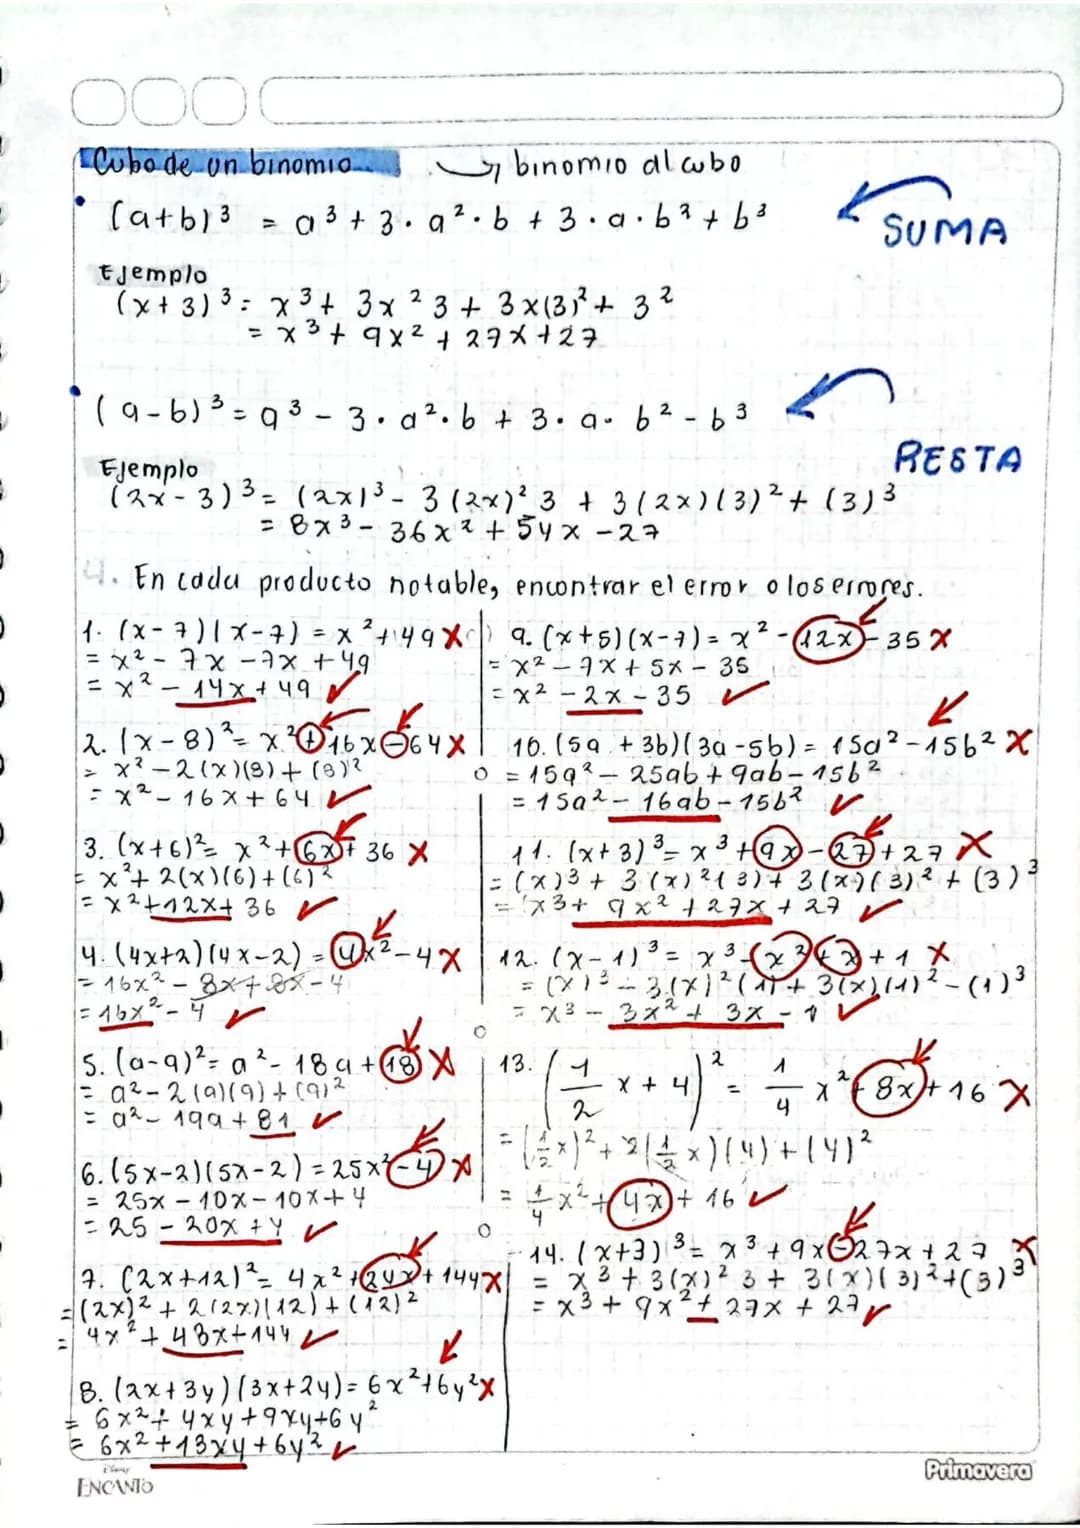 Cubo de un binomio → binomio al cubo
(a+b)³ = a³ + 3·a²·b + 3·a·b² + b³
SUMA
Ejemplo
(x+3)³ = x³ + 3x²3 + 3x(3)² + 3²
= x³ + 9x² + 27x + 27
(a-b)³ = a³ - 3·a²·b + 3·a·b² - b³
RESTA
Ejemplo
(2x-3)³ = (2x)³ - 3(2x)²3 + 3(2x)(3)² + (3)³
= 8x³ - 36x² + 54x - 27
4. En cada producto notable, encontrar el error o los errores.
1. (x-7)(x-7) = x² + 49 X
= x² - 7x - 7x + 49
= x² - 14x + 49 ✓
2. (x-8)² = x² + 16x - 64 X
= x² - 2(x)(8) + (8)²
= x² - 16x + 64 ✓
3. (x+6)² = x² + 6x + 36 X
= x² + 2(x)(6) + (6)²
= x² + 12x + 36 ✓
4. (4x+2)(4x-2) = 4x² - 4 X
= 16x² - 8x + 8x - 4
= 16x² - 4 ✓
5. (a-9)² = a² - 18a + 18 X
= a² - 2(a)(9) + (9)²
= a² - 19a + 81 ✓
6. (5x-2)(5x-2) = 25x² - 4 X
= 25x - 10x - 10x + 4
= 25 - 20x + 4 ✓
7. (2x+12)² = 4x² + 24x + 144 X
= (2x)² + 2(2x)(12) + (12)²
= 4x² + 48x + 144 ✓
8. (2x+3y)(3x+2y) = 6x² + 6y² X
= 6x² + 4xy + 9xy + 6y²
= 6x² + 13xy + 6y² ✓
9. (x+5)(x-7) = x² - 12x - 35 X
= x² - 7x + 5x - 35
= x² - 2x - 35 ✓
10. (5a + 3b)(3a - 5b) = 15a² - 15b² X
= 15a² - 25ab + 9ab - 15b²
= 15a² - 16ab - 15b² ✓
11. (x+3)³ = x³ + 9x - 27 + 27 X
= (x)³ + 3(x)²(3) + 3(x)(3)² + (3)³
= x³ + 9x² + 27x + 27 ✓
12. (x-1)³ = x³ - x² + x + 1 X
= (x)³ - 3(x)²(1) + 3(x)(1)² - (1)³
= x³ - 3x² + 3x - 1 ✓
13. (1/2 x + 4)² = 1/4 x² + 8x + 16 X
= (1/2 x)² + 2(1/2 x)(4) + (4)²
= 1/4 x² + 4x + 16 ✓
14. (x+3)³ = x³ + 9x - 27x + 27 X
= x³ + 3(x)²3 + 3(x)(3)² + (3)³
= x³ + 9x² + 27x + 27 ✓
Disney
ENCANTO
Primavera